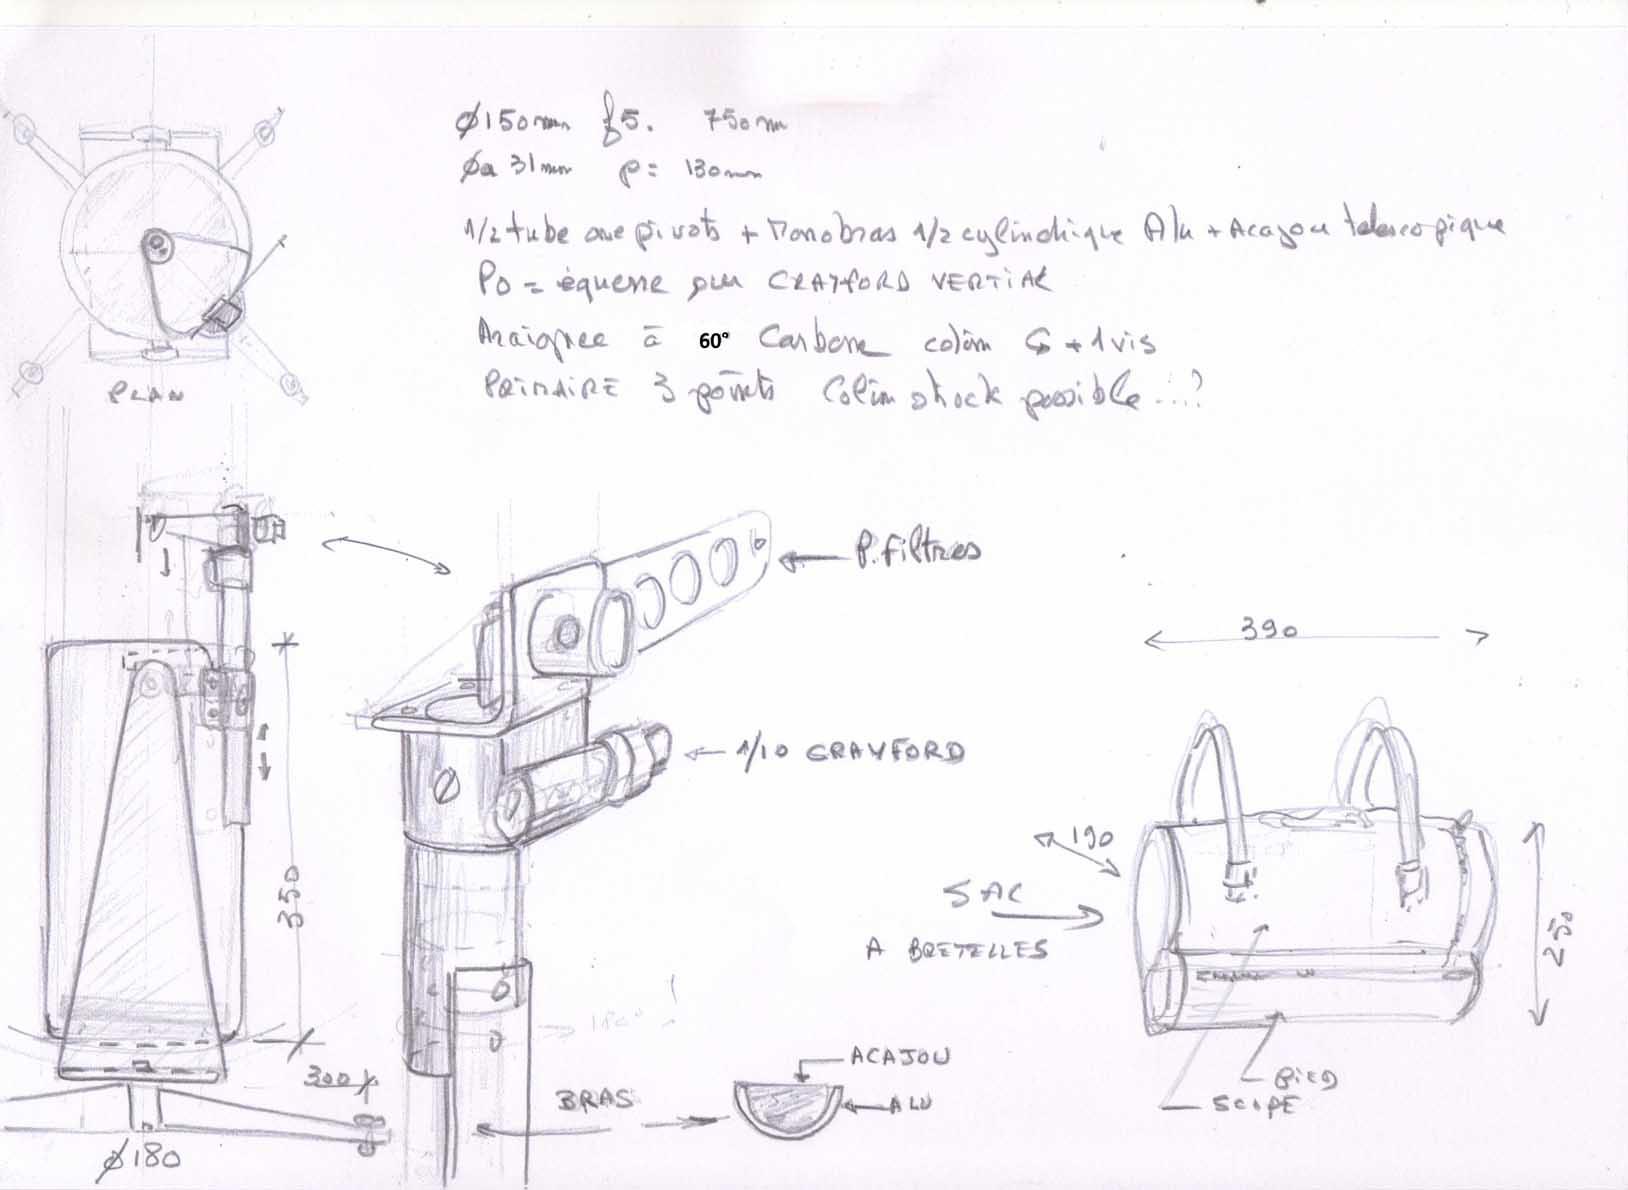 Ø150mm f5. 750mm
Øa 31mm p= 130mm
1/2 tube avec pivots + Monobras 1/2 cylindrique Alu + Acajou telescopique
PO = équerre sur CRAYFORD VERTICAL
Araignee à 60° Carbone colim + 1 vis
PRIMAIRE 3 points Colim shock possible ....?
PLAN
P. Filtres
390
1/10 CRAYFORD
190
SAC
A BRETELLES
250
350
180°
300
ACAJOU
BRAS
ALU
PIED
SCOPE
Ø180